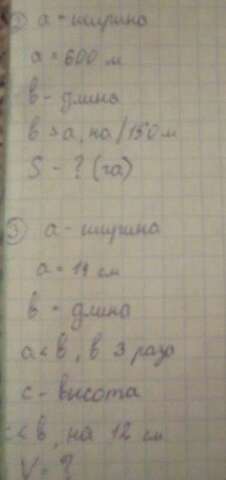 ② a - ширина
a = 600 м
b - длина
b > a, на 150 м
S - ? (га)
③ a - ширина
a = 14 см
b - длина
a < b, в 3 раза
c - высота
c < b, на 12 см
V = ?